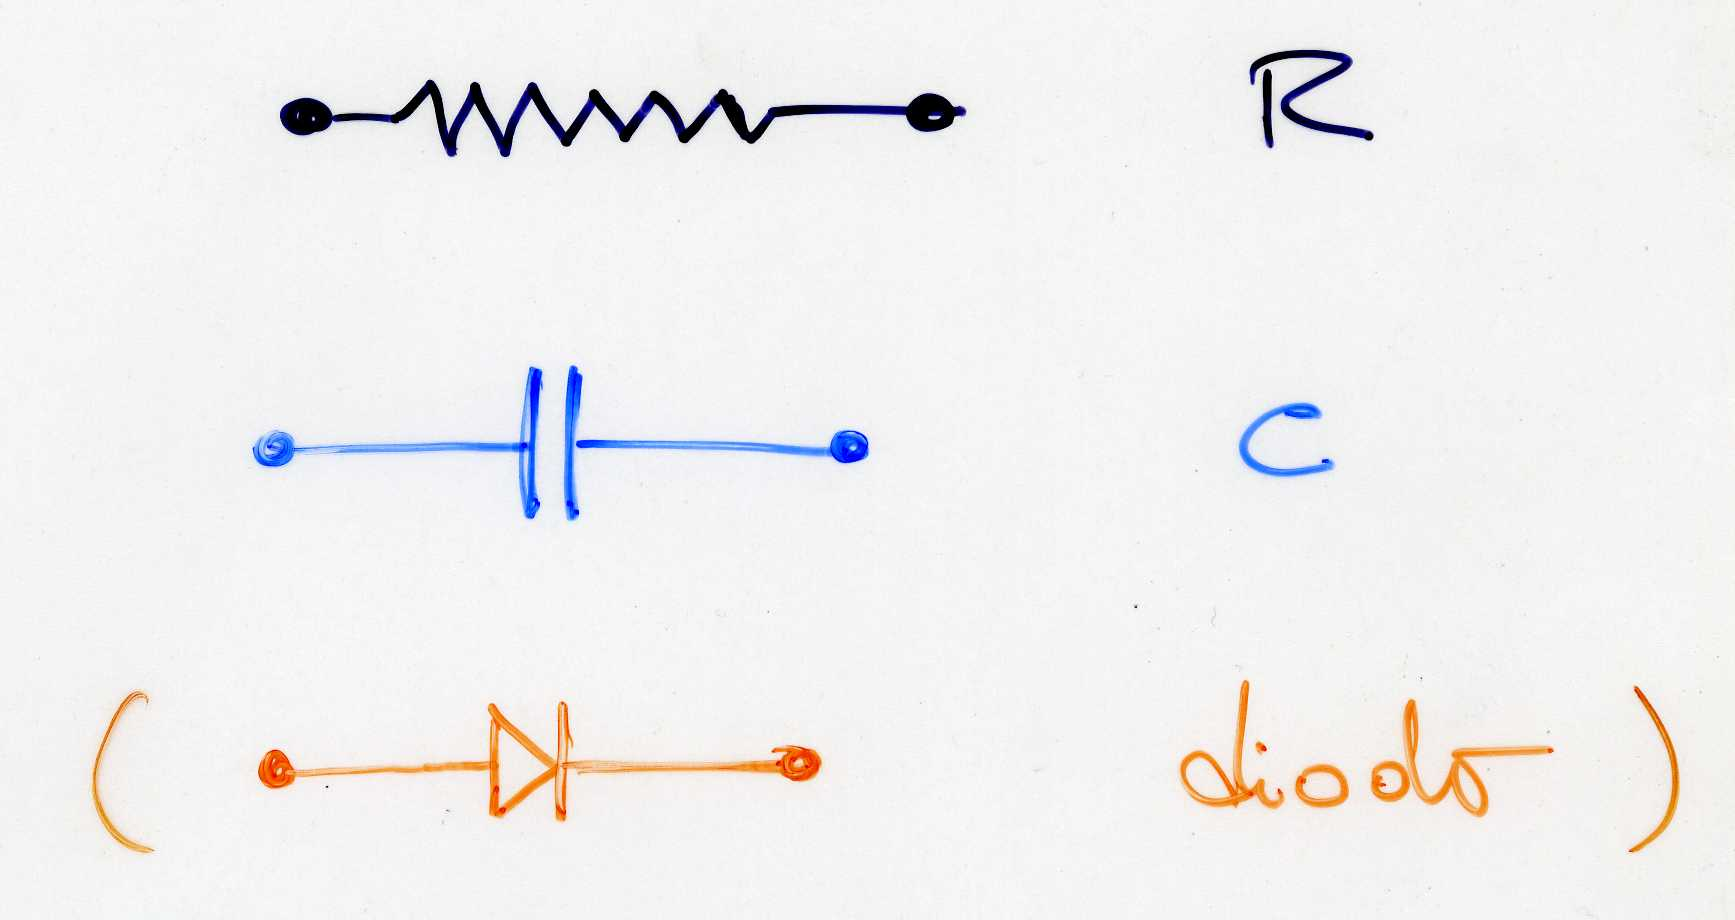 R
C
( diodo )